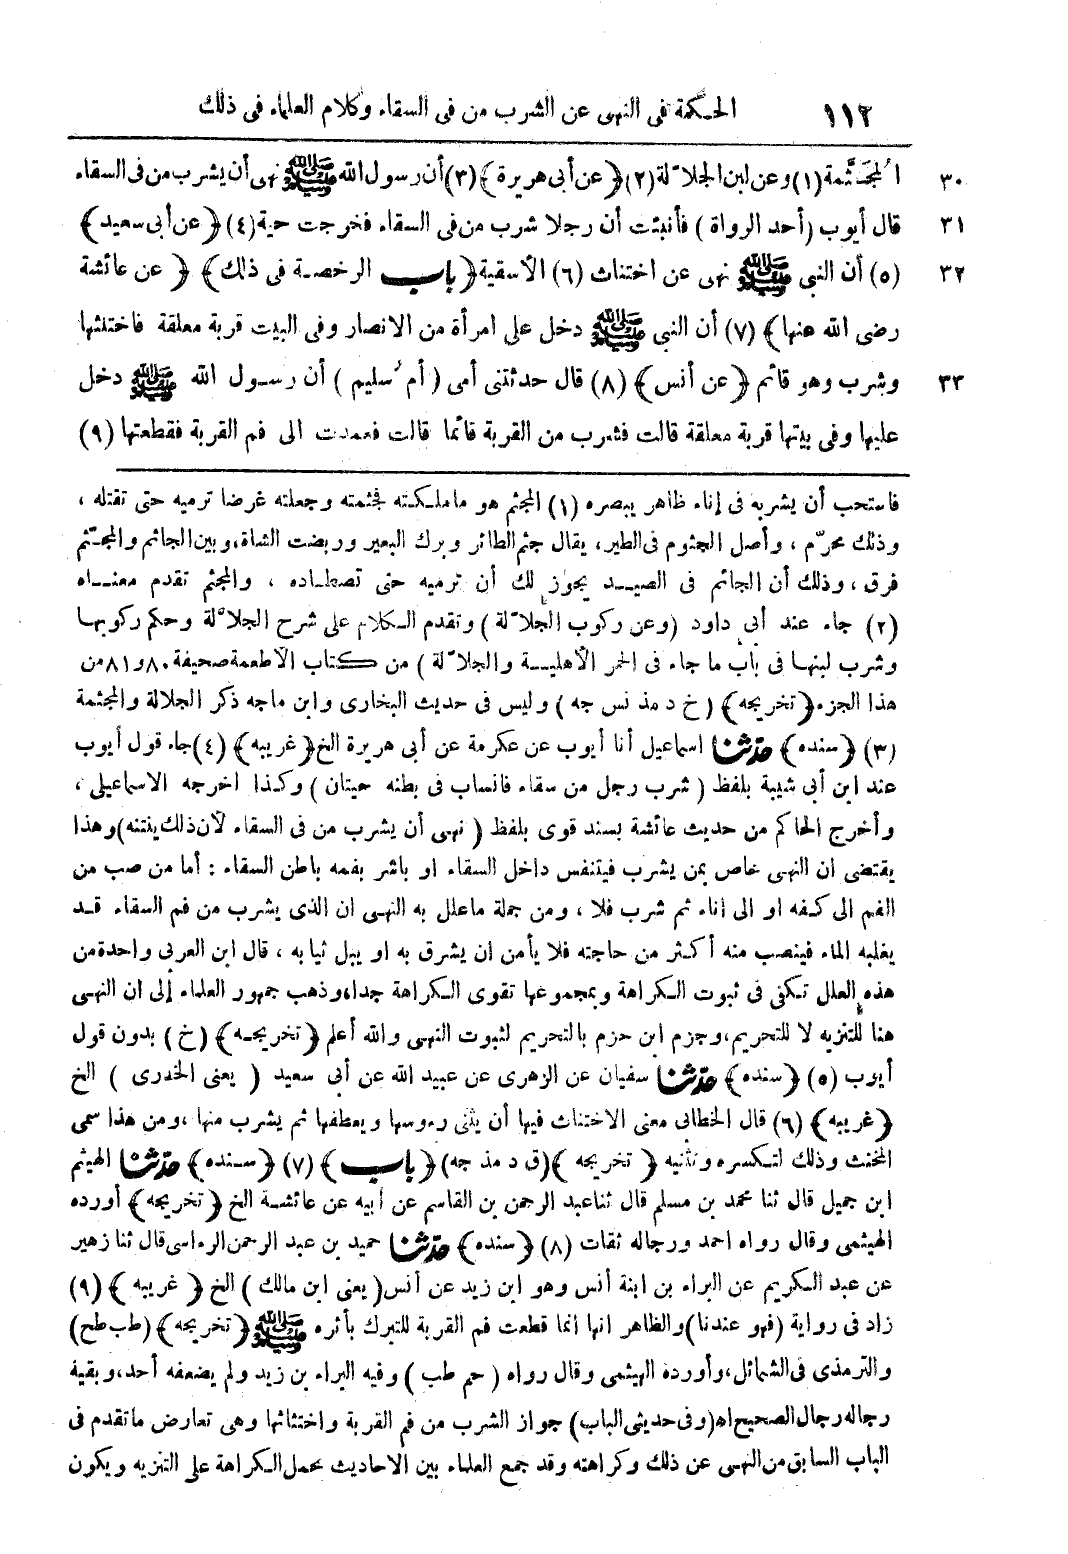 ١١٢ الحكمة فى النهى عن الشرب من فى السقاء وكلام العلماء فى ذلك
٣٠ المُجَثَّمة (١) وعن لبن الجلاّلة (٢) ﴿عن أبى هريرة﴾ (٣) أن رسول الله ﷺ نهى أن يشرب من فى السقاء
٣١ قال أيوب (أحد الرواة) فأنبئت أن رجلا شرب من فى السقاء فخرجت حية (٤) ﴿عن أبى سعيد﴾
٣٢ (٥) أن النبى ﷺ نهى عن اختناث (٦) الأسقية ﴿باب الرخصة فى ذلك﴾ ﴿عن عائشة
رضى الله عنها﴾ (٧) أن النبى ﷺ دخل على امرأة من الانصار وفى البيت قربة معلقة فاختنثها
٣٣ وشرب وهو قائم ﴿عن أنس﴾ (٨) قال حدثتنى أمى (أم سُليم) أن رسول الله ﷺ دخل
عليها وفى بيتها قربة معلقة قالت فشرب من القربة قائما قالت فعمدت الى فم القربة فقطعتها (٩)
فاستحب أن يشربه فى إناء ظاهر يبصره (١) المجثم هو ماملكته فجثمته وجعلته غرضا ترميه حتى تقتله ،
وذلك محرّم ، وأصل الجثوم فى الطير، يقال جثم الطائر وبرك البعير وربضت الشاة، وبين الجاثم والمجثّم
فرق ، وذلك أن الجاثم فى الصيد يجوز لك أن ترميه حتى تصطاده ، والمجثم تقدم معناه
(٢) جاء عند أبى داود (وعن ركوب الجلاّلة) وتقدم الكلام على شرح الجلاّلة وحكم ركوبها
وشرب لبنها فى باب ما جاء فى الحمر الأهلية والجلاّلة) من كتاب الأطعمة صحيفة ٨٠ و٨١ من
هذا الجزء ﴿تخريجه﴾ (خ د مذ نس جه) وليس فى حديث البخارى وابن ماجه ذكر الجلالة والمجثمة
(٣) ﴿سنده﴾ حدّثنا اسماعيل أنا أيوب عن عكرمة عن أبى هريرة الخ ﴿غريبه﴾ (٤) جاء قول أيوب
عند ابن أبى شيبة بلفظ (شرب رجل من سقاء فانساب فى بطنه حيتان) وكذا اخرجه الاسماعيلى ،
وأخرج الحاكم من حديث عائشة بسند قوى بلفظ (نهى أن يشرب من فى السقاء لأن ذلك ينتنه) وهذا
يقتضى ان النهى خاص بمن يشرب فيتنفس داخل السقاء او باشر بفمه باطن السقاء : أما من صب من
الفم الى كفه او الى اناء ثم شرب فلا ، ومن جملة ماعلل به النهى ان الذى يشرب من فم السقاء قد
يغلبه الماء فينصب منه أكثر من حاجته فلا يأمن ان يشرق به او يبل ثيابه ، قال ابن العربى واحدة من
هذه العلل تكفى فى ثبوت الكراهة وبمجموعها تقوى الكراهة جدا، وذهب جمهور العلماء إلى ان النهى
هنا للتنزيه لا للتحريم، وجزم ابن حزم بالتحريم لثبوت النهى والله أعلم ﴿تخريجه﴾ (خ) بدون قول
أيوب (٥) ﴿سنده﴾ حدّثنا سفيان عن الزهرى عن عبيد الله عن أبى سعيد (يعنى الخدرى) الخ
﴿غريبه﴾ (٦) قال الخطابى معنى الاختناث فيها أن يثنى رءوسها ويعطفها ثم يشرب منها ، ومن هذا سمى
المخنث وذلك لتكسره وتثنيه ﴿تخريجه﴾ (ق د مذ جه) ﴿باب﴾ (٧) ﴿سنده﴾ حدّثنا الهيثم
ابن جميل قال ثنا محمد بن مسلم قال ثنا عبد الرحمن بن القاسم عن أبيه عن عائشة الخ ﴿تخريجه﴾ أورده
الهيثمى وقال رواه احمد ورجاله ثقات (٨) ﴿سنده﴾ حدّثنا حميد بن عبد الرحمن الرءاسى قال ثنا زهير
عن عبد الكريم عن البراء بن ابنة أنس وهو ابن زيد عن أنس (يعنى ابن مالك) الخ ﴿غريبه﴾ (٩)
زاد فى رواية (فهو عندنا) والظاهر انها انما قطعت فم القربة للتبرك بأثره ﷺ ﴿تخريجه﴾ (طب طح)
والترمذى فى الشمائل، وأورده الهيثمى وقال رواه (حم طب) وفيه البراء بن زيد ولم يضعفه أحد، وبقية
رجاله رجال الصحيح اه (وفى حديثى الباب) جواز الشرب من فم القربة واختنائها وهى تعارض ماتقدم فى
الباب السابق من النهى عن ذلك وكراهته وقد جمع العلماء بين الاحاديث بحمل الكراهة على التنزيه ويكون